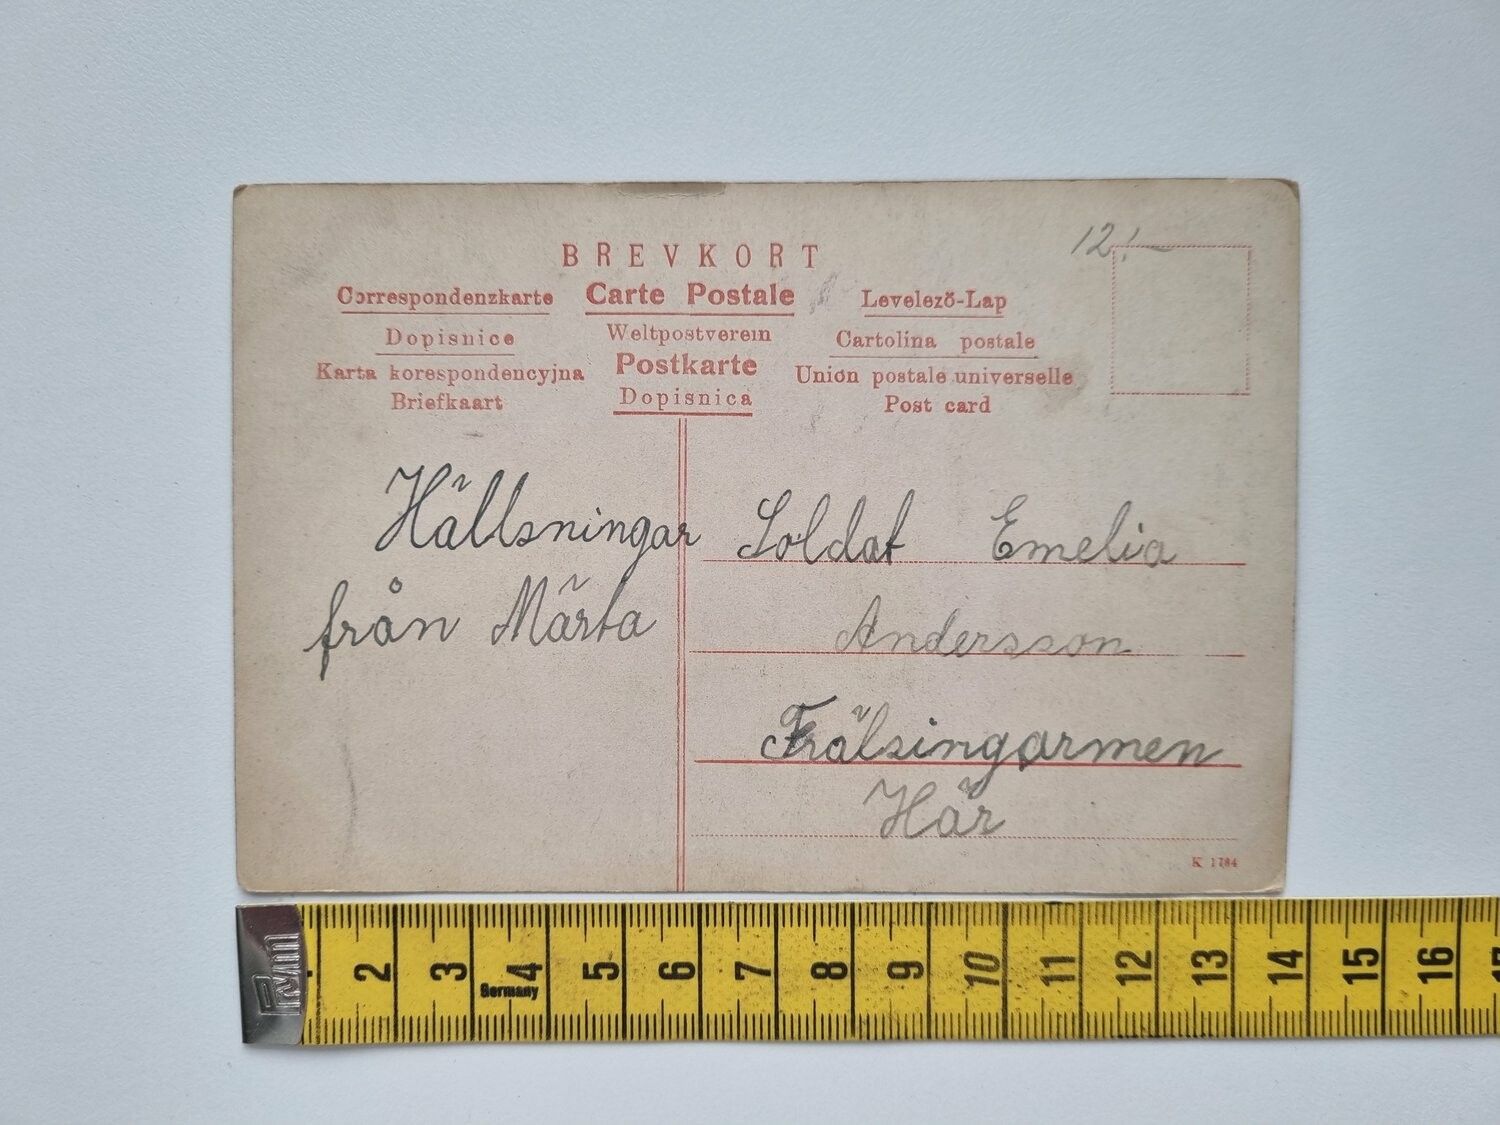 12:-
BREVKORT
Correspondenzkarte
Carte Postale
Levelező-Lap
Dopisnice
Weltpostverein
Cartolina postale
Karta korespondencyjna
Postkarte
Union postale universelle
Briefkaart
Dopisnica
Post card
Hällsningar
från Märta
Soldat Emelia
Andersson
Frälsingarmen
Här
K 1784
PM
2 3 4 5 6 7 8 9 10 11 12 13 14 15 16
Germany